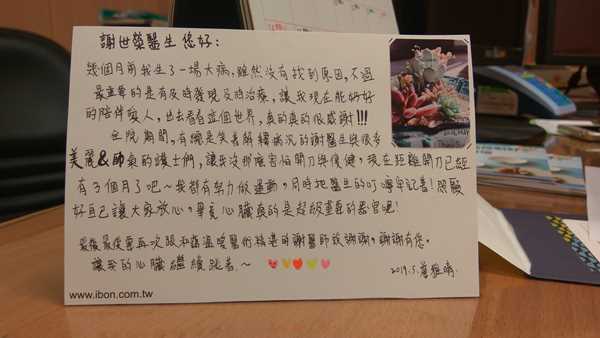 謝世榮醫生 您好：
幾個月前我生了一場大病，雖然沒有找到原因，不過
最重要的是有及時發現及時治療，讓我現在能好好
的陪伴家人，出去看看這個世界，真的真的很感謝!!!
住院期間，有總是笑著解釋病況的謝醫生與很多
美麗&帥氣的護士們，讓我沒那麼害怕開刀與復健，現在距離開刀已經
有3個月了吧～我都有努力做運動，同時把醫生的叮嚀牢記著！照顧
好自己讓大家放心，畢竟心臟真的是超級重要的器官吧！
最後最後要再次跟和藹溫暖醫術精湛的謝醫師說謝謝，謝謝有您，
讓我的心臟繼續跳著～
2019.5.
www.ibon.com.tw